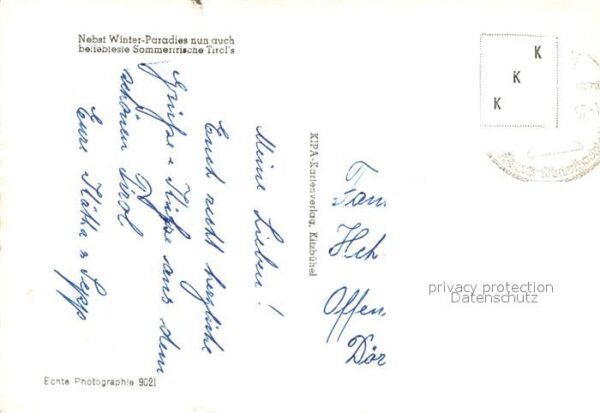 Nebst Winter-Paradies nun auch
beliebteste Sommerfrische Tirol's
Meine Lieben!
Euch recht herzliche
Grüße & Küsse aus dem
schönen Tirol
Eure Kätha & Sepp
KIPA-Kartenverlag, Kitzbühel
K
K
K
Fam
Heh
Offen
Dör
privacy protection
Datenschutz
Echte Photographie 9021